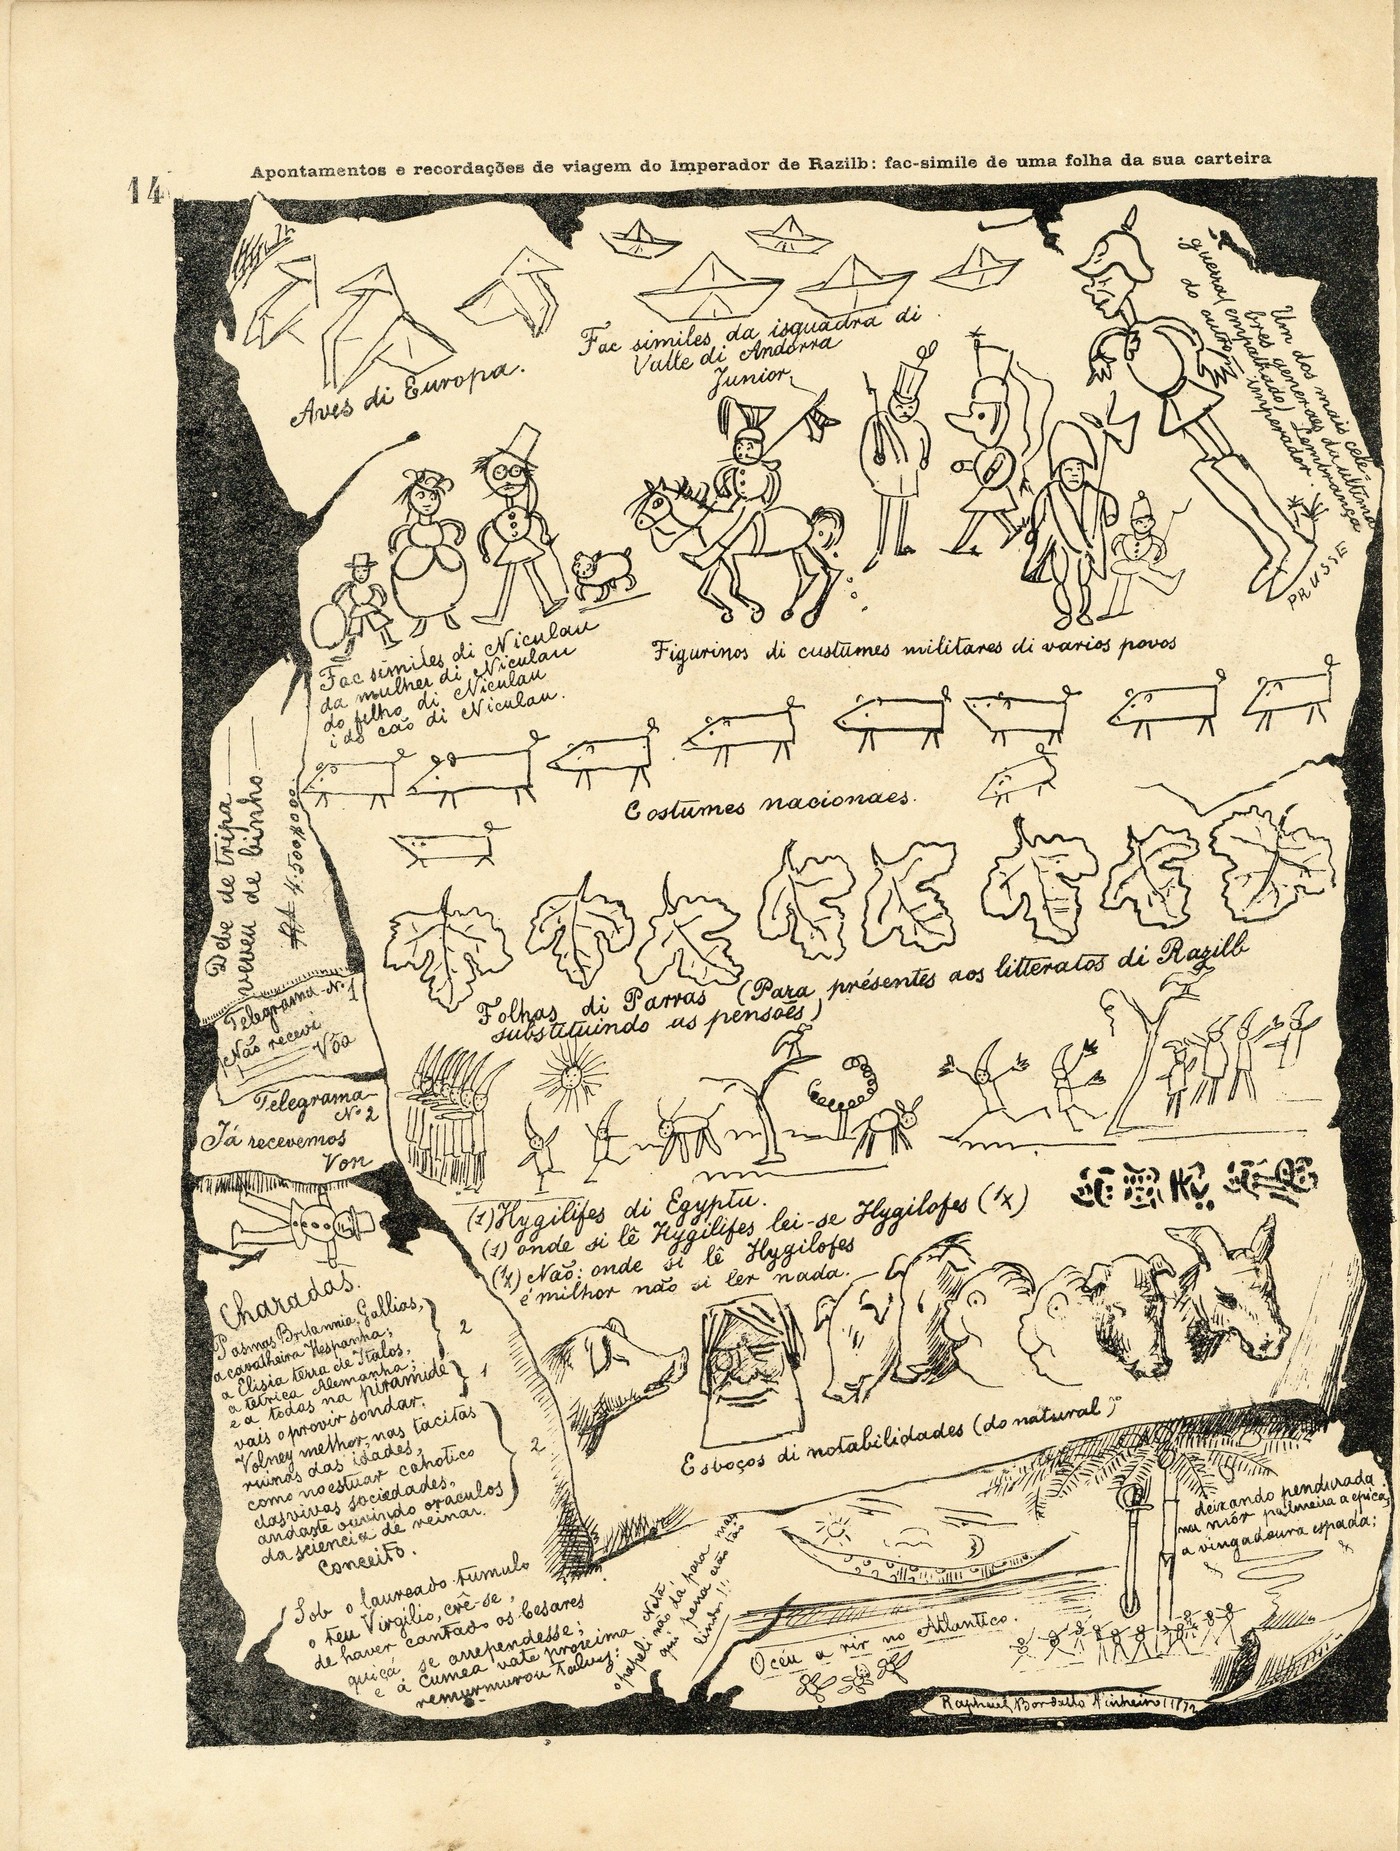 Apontamentos e recordações de viagem do Imperador de Razilb: fac-simile de uma folha da sua carteira
14
Aves di Europa.
Fac similes da isquadra di
Valle di Andorra
Junior
Um dos mais cele-
bres generaes da ultima
guerra (empalhado) Lembrança
do outro imperador.
PRUSSE
Fac similes di Niculau
da mulher di Niculau
do filho di Niculau
i do cão di Niculau.
Figurinos di custumes militares di varios povos
Costumes nacionaes.
Debe de tripa
veveu de binho
4.500#000
Folhas di Parras (Para présentes aos litteratos di Razilb
substituindo as pensões)
Telegrama Nº 1
Não recevi
Vôo
Telegrama
Nº 2
Já recevemos
Von
(1) Hygilifes di Egyptu.
(1) onde si lê Hygilifes lei-se Hygilofes (1/2)
(1/2) Não: onde si lê Hygilofes
é milhor não si ler nada.
Charadas.
Pasmas Britannia, Gallias,
a cavalheira Hespanha;
a Elisia terra de Italos,
a tétrica Alemanha;
e a todas na piramide
vais o provir sondar.
Volney melhor, nas tacitas
ruinas das idades,
como no estuar cahotico
das vivas sociedades,
andaste ouvindo oraculos
da sciencia de reinar.
2
1
2
Conceito.
Sob o laureado tumulo
o teu Virgilio, crê-se,
de haver cantado os Cesares
quiçá se arrependesse;
e á Cumea vate proxima
remurmurou talvez:
Esboços di notabilidades (do natural)
Nota
o papeli não dá para mas
qui pena erão tão
lindos!!
O céu a rir no Atlantico.
deixando pendurada
na mór palmeira a epica,
a vingadoura espada;
Raphael Bordallo Pinheiro 1872